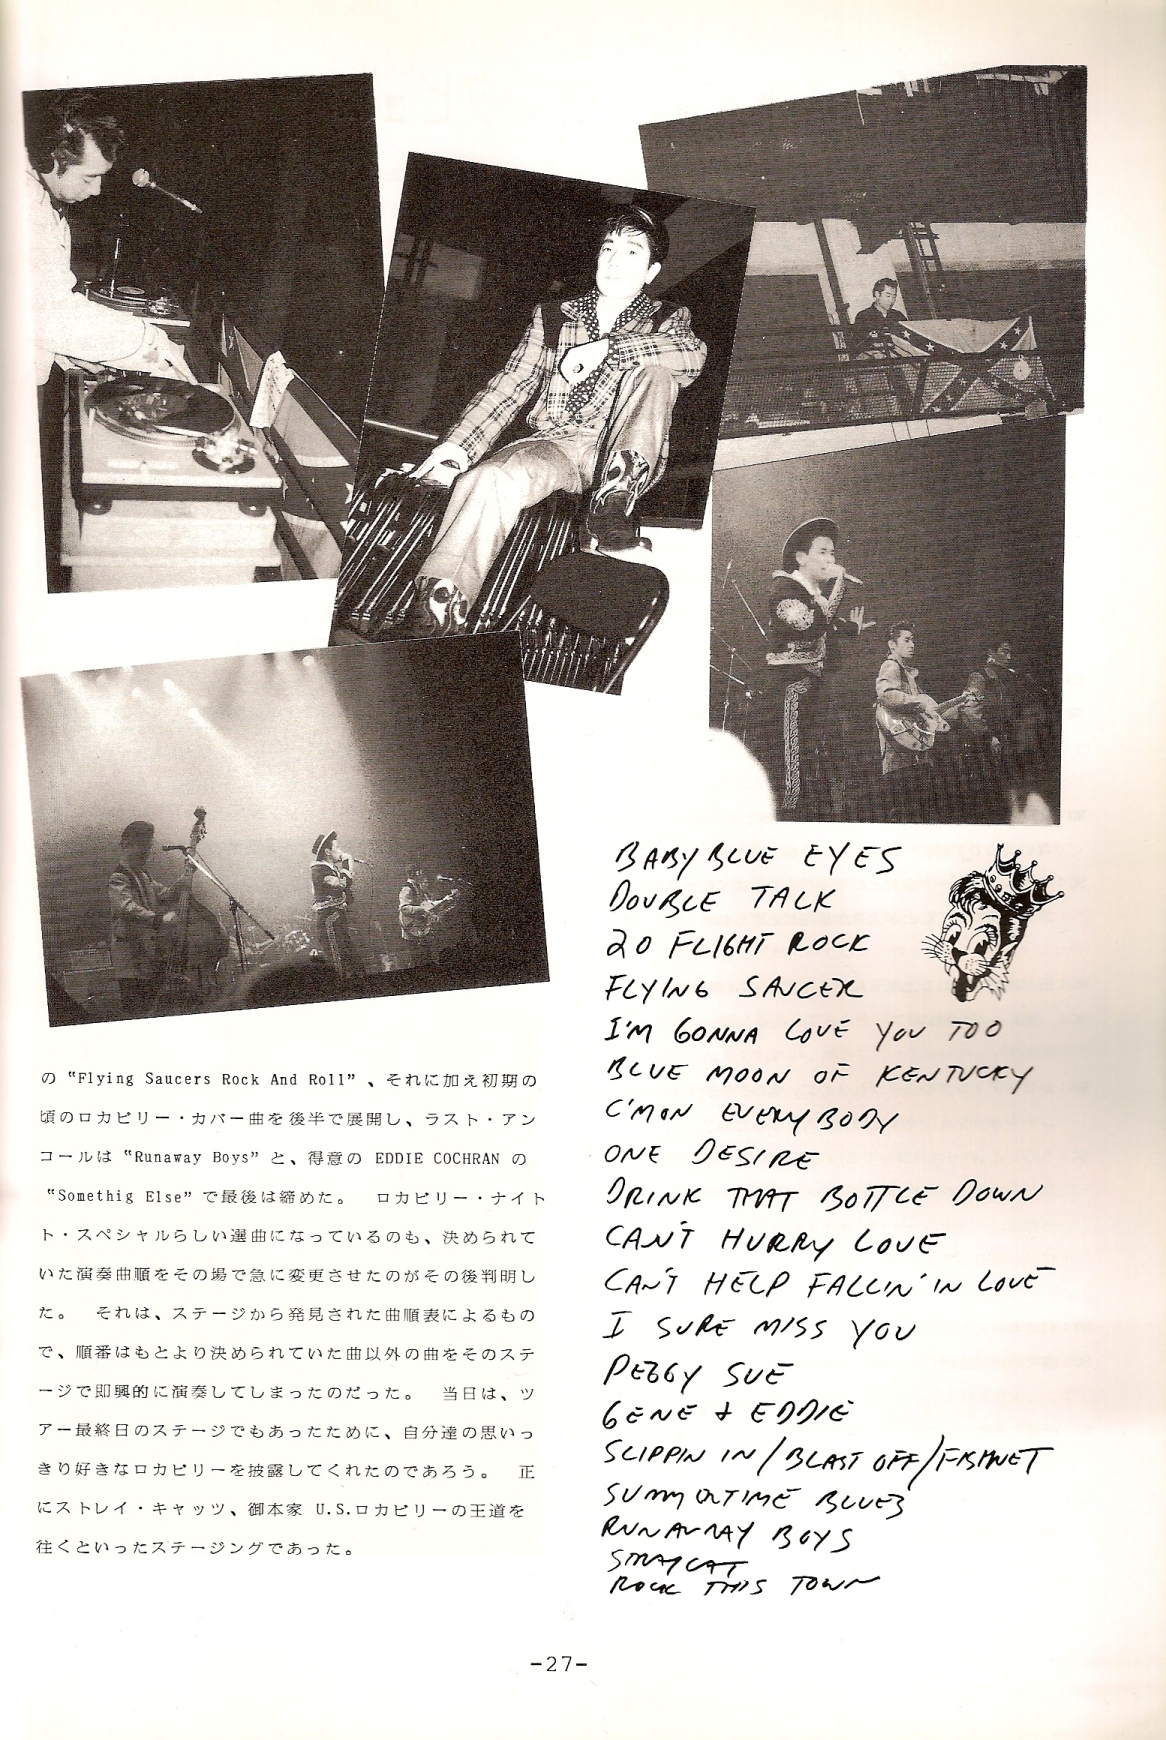 の “Flying Saucers Rock And Roll” 、それに加え初期の
頃のロカビリー・カバー曲を後半で展開し、ラスト・アン
コールは “Runaway Boys” と、得意の EDDIE COCHRAN の
“Somethig Else” で最後は締めた。　ロカビリー・ナイト
ト・スペシャルらしい選曲になっているのも、決められて
いた演奏曲順をその場で急に変更させたのがその後判明し
た。　それは、ステージから発見された曲順表によるもの
で、順番はもとより決められていた曲以外の曲をそのステ
ージで即興的に演奏してしまったのだった。　当日は、ツ
アー最終日のステージでもあったために、自分達の思いっ
きり好きなロカビリーを披露してくれたのであろう。　正
にストレイ・キャッツ、御本家 U.S.ロカビリーの王道を
往くといったステージングであった。
BABY BLUE EYES
DOUBLE TALK
20 FLIGHT ROCK
FLYING SAUCER
I'M GONNA LOVE YOU TOO
BLUE MOON OF KENTUCKY
C'MON EVERYBODY
ONE DESIRE
DRINK THAT BOTTLE DOWN
CAN'T HURRY LOVE
CAN'T HELP FALLIN' IN LOVE
I SURE MISS YOU
PEGGY SUE
GENE & EDDIE
SLIPPIN IN / BLAST OFF / FISHNET
SUMMERTIME BLUES
RUNAWAY BOYS
STRAY CAT
ROCK THIS TOWN
-27-